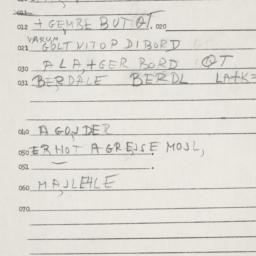 012 + GEMBE BUT OT. 020
VARUM
021 GOLT VITOP DIBORD
030 A LA, + GER BORD OT
031 BERDALE BERDL LA+K=
040 A GONDER
050 ER HOT AGREJSE MOJL,
051
060 MAJLEHLE
070